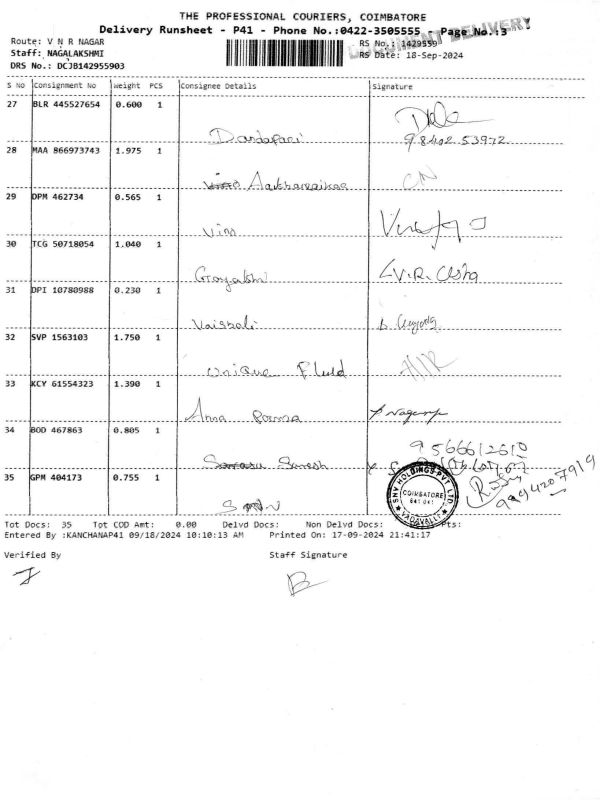 THE PROFESSIONAL COURIERS, COIMBATORE
Delivery Runsheet - P41 - Phone No.:0422-3505555 Page No.:3
DOCUMENT DELIVERY
Route: V N R NAGAR
RS No.: 1429559
Staff: NAGALAKSHMI
RS Date: 18-Sep-2024
DRS No.: DCJB142955903
S No Consignment No Weight PCS Consignee Details Signature
27 BLR 445527654 0.600 1
Dandapani
98402 53972
28 MAA 866973743 1.975 1
CN
29 DPM 462734 0.565 1
30 TCG 50718054 1.040 1
V.R. Usha
Gayathri
31 DPI 10780988 0.230 1
Vaishali
32 SVP 1563103 1.750 1
Unique Fluid
33 KCY 61554323 1.390 1
Anna
34 BOD 467863 0.805 1
9566612610
Ganesh
35 GPM 404173 0.755 1
SNV HOLDINGS PVT LTD
COIMBATORE
641 041
VADAVALLI
9994207919
Tot Docs: 35 Tot COD Amt: 0.00 Delvd Docs: Non Delvd Docs: Pts:
Entered By :KANCHANAP41 09/18/2024 10:10:13 AM Printed On: 17-09-2024 21:41:17
Verified By Staff Signature